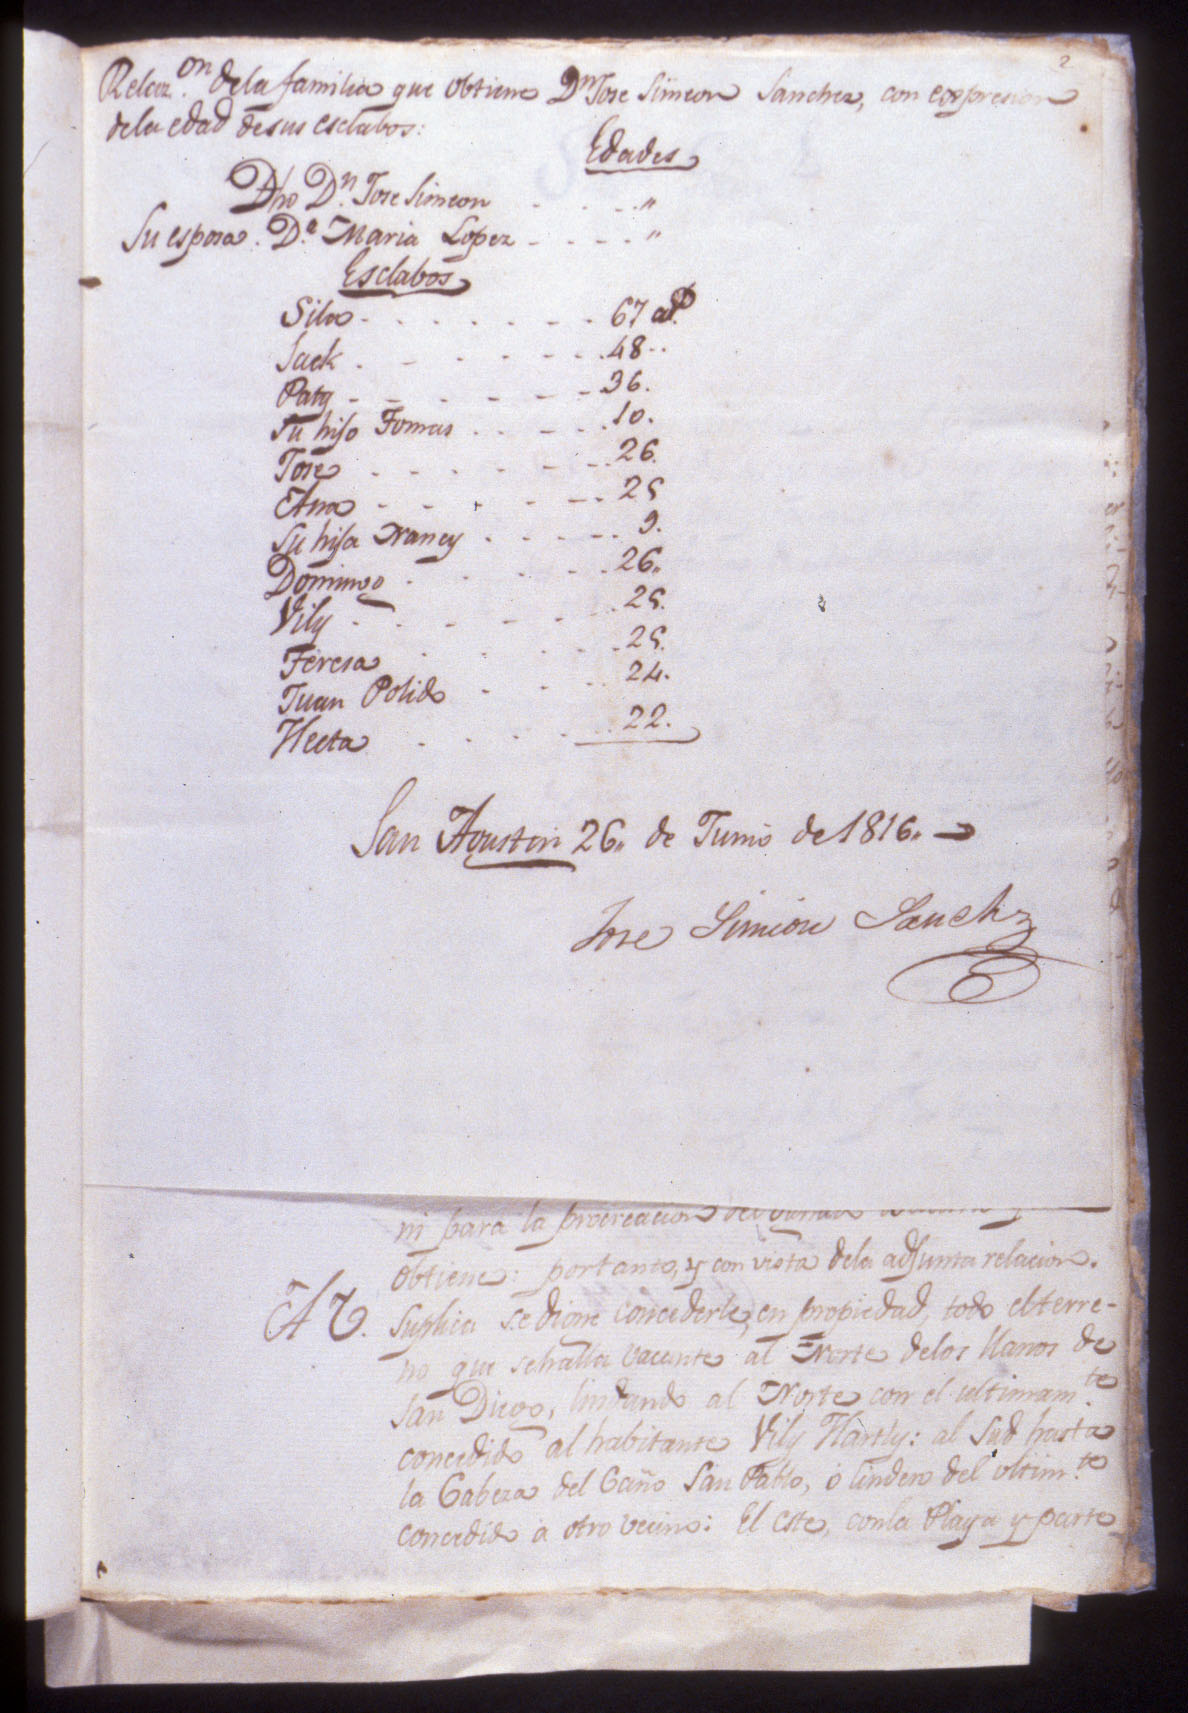 2
Relaz.on dela familia que obtiene Dn Jose Simeon Sanchez, con expresion
dela edad desus esclabos:
Edades
Dho Dn. Jose Simeon - - - - "
Su esposa. Da. Maria Lopez - - - - "
Esclabos
Sila - - - - - - - 67 as.
Jack - - - - - - 48
Paty - - - - - - 36.
Su hijo Tomas - - - - 10.
Jose - - - - - - 26.
Ana - - - - - - 25
Su hija Nancy - - - - - 9.
Domingo - - - - - 26.
Vily - - - - - - 25.
Teresa - - - - - 25.
Juan Polido - - - - 24.
Hecta - - - - - 22.
San Agustin 26,, de Junio de 1816,,
Jose Simeon Sanchz
ni para la procreacion del
obtiene: portanto, y con vista dela adjunta relacion.
A V. Suplica se digne concederle, en propiedad, todo el terre-
no que sehalla vacante al Norte delos llanos de
San Diego, lindando al Norte con el ultimam.te
concedido al habitante Vily Hartly: al Sud hasta
la Cabeza del Caño San Pablo, ó lindero del ultim.te
concedido à otro vecino: El este, conla Playa y parte